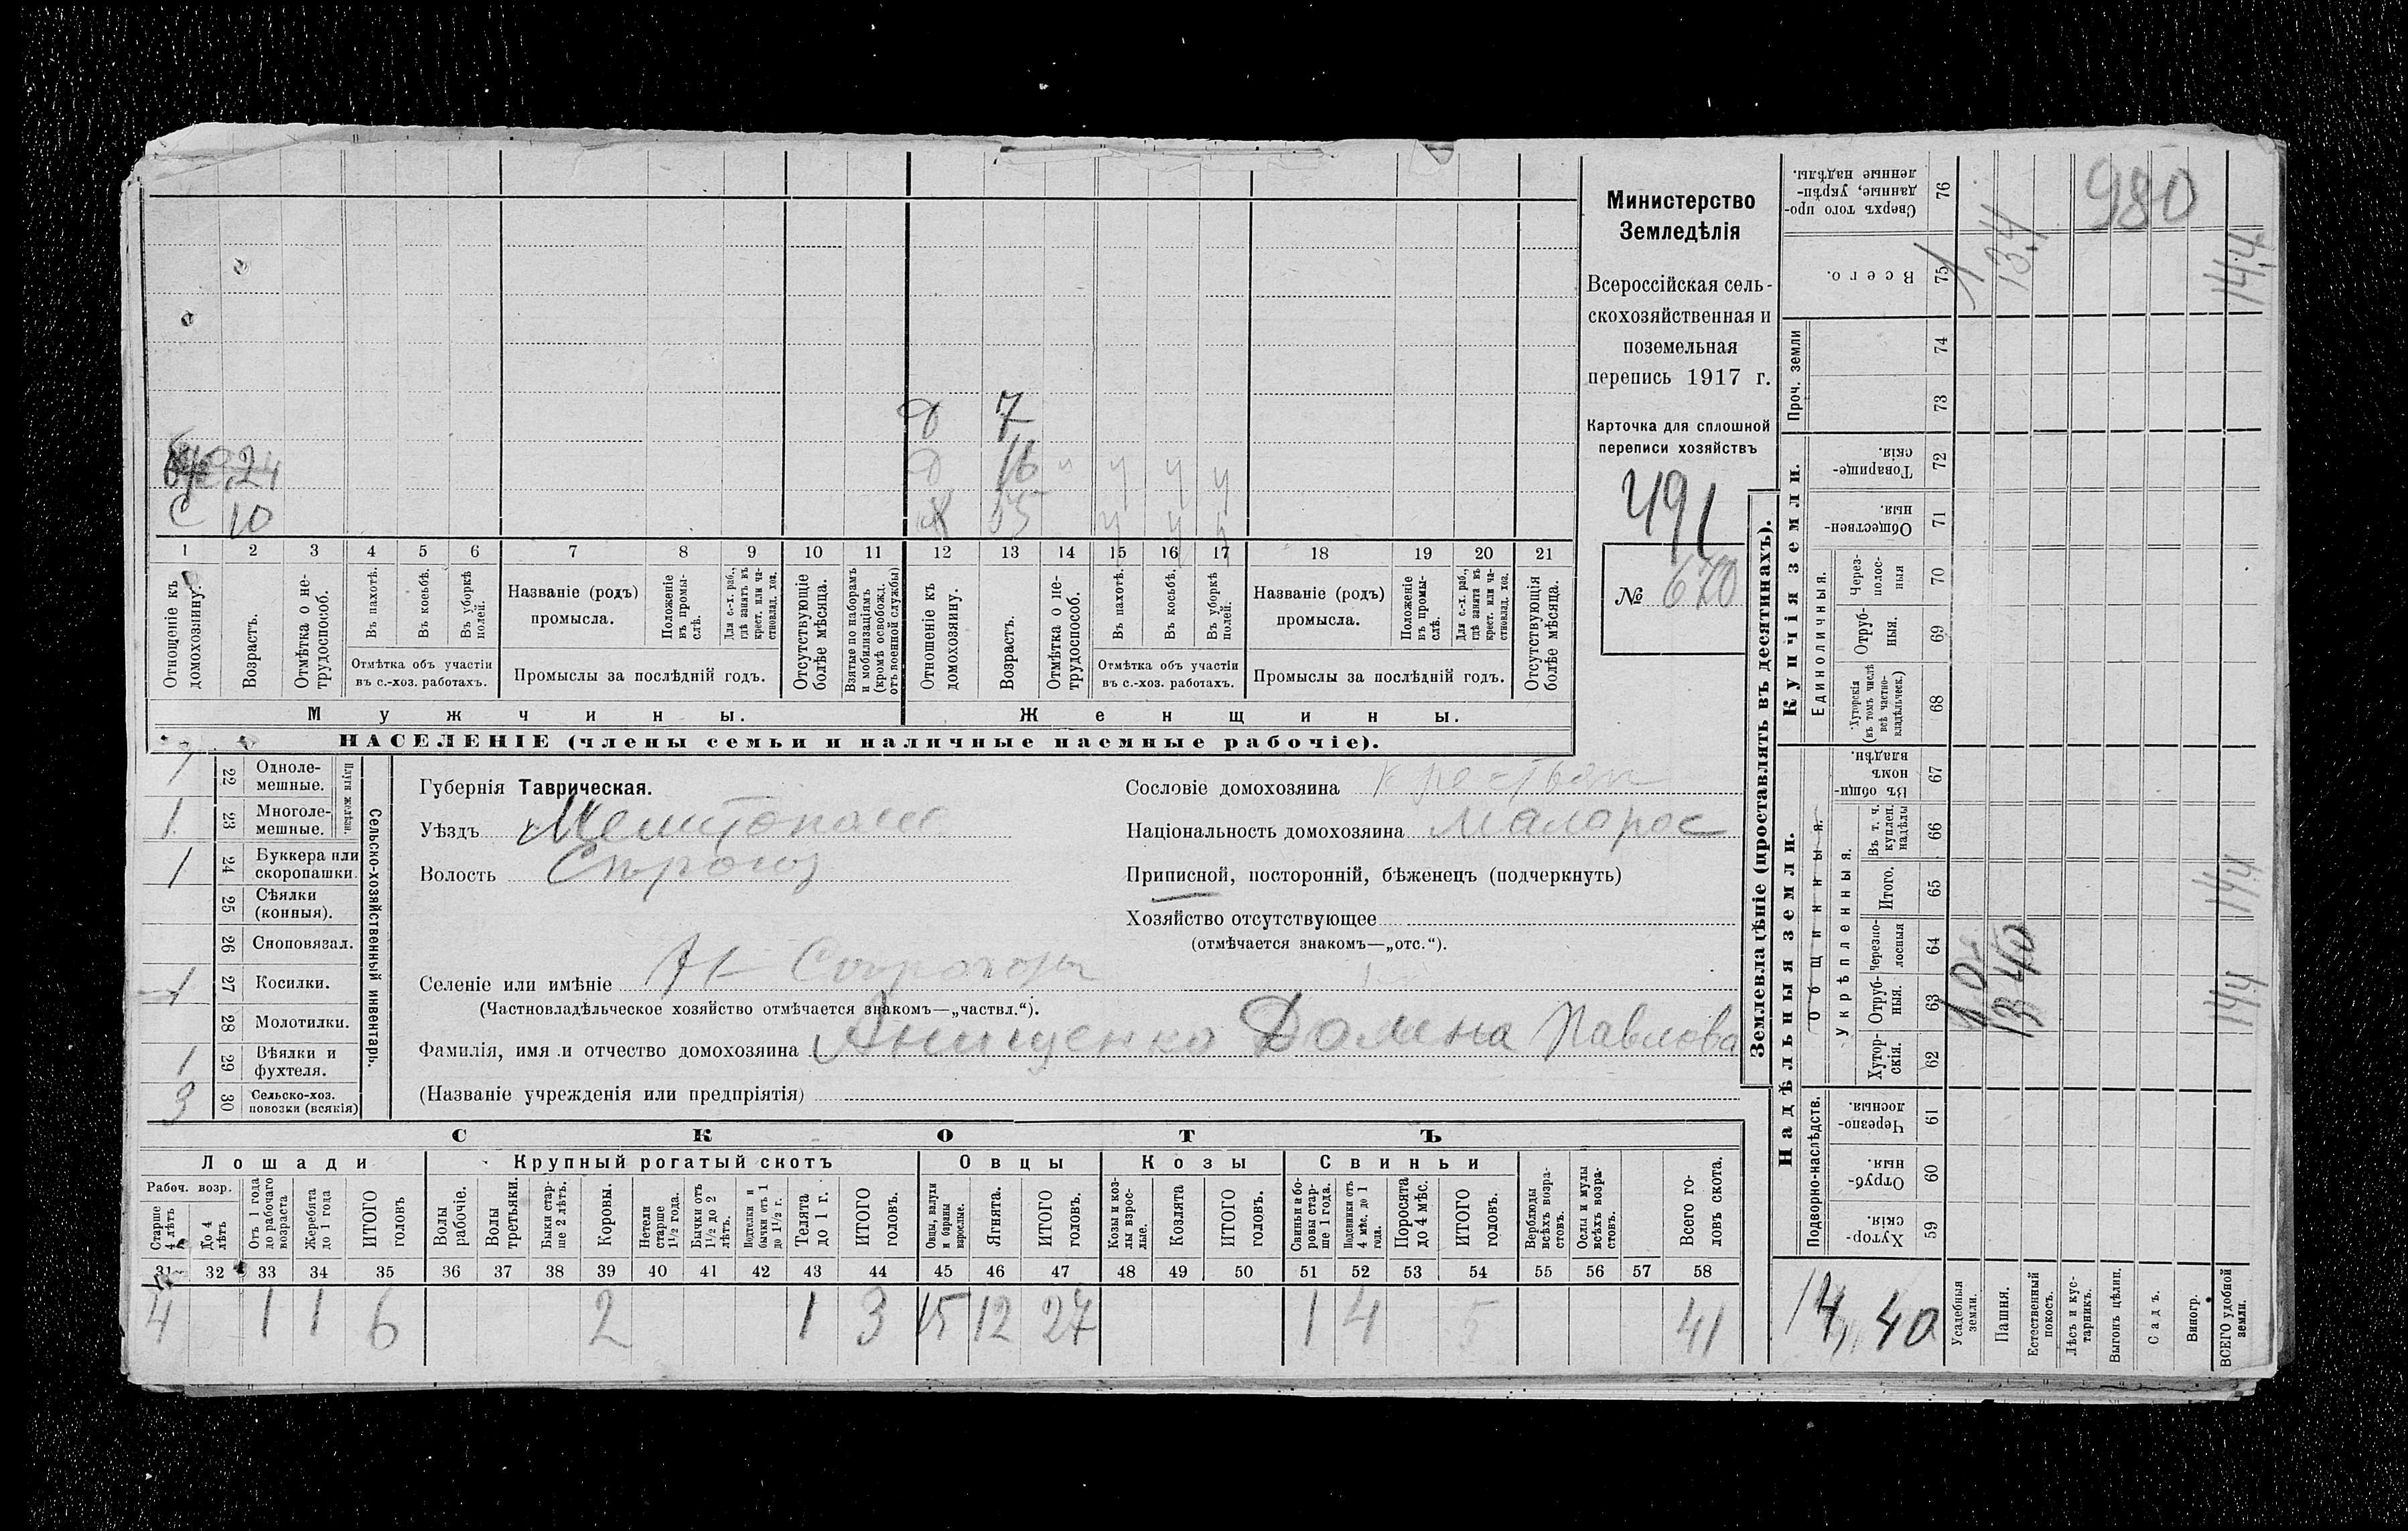 Министерство
Земледѣлія
Всероссійская сель-
скохозяйственная и
поземельная
перепись 1917 г.
Карточка для сплошной
переписи хозяйствъ
491
№ 670
7
16
С 10
1 2 3 4 5 6 7 8 9 10 11 12 13 14 15 16 17 18 19 20 21
Отношеніе къ домохозяину.
Возрастъ.
Отмѣтка о не-трудоспособ.
Въ пахотѣ.
Въ косьбѣ.
Въ уборкѣ полей.
Отмѣтка объ участіи
въ с.-хоз. работахъ.
Названіе (родъ)
промысла.
Положеніе въ промы-слѣ.
Для с.-х. раб., гдѣ занятъ въ крест. или ча-стновлад. хоз.
Промыслы за послѣдній годъ.
Отсутствующіе болѣе мѣсяца.
Взятые по наборамъ и мобилизаціямъ (кромѣ освобожд. отъ военной службы)
Отношеніе къ домохозяину.
Возрастъ.
Отмѣтка о не-трудоспособ.
Въ пахотѣ.
Въ косьбѣ.
Въ уборкѣ полей.
Отмѣтка объ участіи
въ с.-хоз. работахъ.
Названіе (родъ)
промысла.
Положеніе въ промы-слѣ.
Для с.-х. раб., гдѣ занята въ крест. или ча-стновлад. хоз.
Промыслы за послѣдній годъ.
Отсутствующія болѣе мѣсяца.
Мужчины.
Женщины.
НАСЕЛЕНІЕ (члены семьи и наличные наемные рабочіе).
1 22 Одноле-мешные.
1 23 Многоле-мешные.
Плуги желѣзн.
1 24 Буккера или скоропашки.
25 Сѣялки (конныя).
26 Сноповязал.
1 27 Косилки.
28 Молотилки.
1 29 Вѣялки и фухтеля.
3 30 Сельско-хоз. повозки (всякія)
Сельско-хозяйственный инвентарь.
Губернія Таврическая.
Уѣздъ
Волость
Селеніе или имѣніе
(Частновладѣльческое хозяйство отмѣчается знакомъ—„частвл.“).
Фамилія, имя и отчество домохозяина Анищенко Домна Павлова
(Названіе учрежденія или предпріятія)
Сословіе домохозяина крестьян
Національность домохозяина малорос
Приписной, посторонній, бѣженецъ (подчеркнуть)
Хозяйство отсутствующее
(отмѣчается знакомъ—„отс.“).
СКОТЪ
Лошади
Крупный рогатый скотъ
Овцы
Козы
Свиньи
Рабоч. возр.
Старше 4 лѣтъ
До 4 лѣтъ
Отъ 1 года до рабочаго возраста
Жеребята до 1 года
ИТОГО головъ
Волы рабочіе.
Волы третьяки.
Быки стар-ше 2 лѣтъ.
Коровы.
Нетели старше 1½ года.
Бычки отъ 1½ до 2 лѣтъ.
Подтелки и бычки отъ 1 до 1½ г.
Телята до 1 г.
ИТОГО головъ.
Овцы, валухи и бараны взрослые.
Ягнята.
ИТОГО головъ.
Козы и коз-лы взрос-лые.
Козлята
ИТОГО головъ.
Свиньи и бо-ровы стар-ше 1 года.
Подсвинки отъ 4 мѣс. до 1 года.
Поросята до 4 мѣс.
ИТОГО головъ.
Верблюды всѣхъ возра-стовъ.
Ослы и мулы всѣхъ возра-стовъ.
Всего го-ловъ скота.
31 32 33 34 35 36 37 38 39 40 41 42 43 44 45 46 47 48 49 50 51 52 53 54 55 56 57 58
4 1 1 6 2 1 3 15 12 27 1 4 5 41
Землевладѣніе (проставлять въ десятинахъ).
Надѣльныя земли.
Купчія земли.
Проч. земли
Сверхъ того про-данные, укрѣп-ленные надѣлы. 76
Всего. 75
74
73
Товарище-скія. 72
Обществен-ныя. 71
Единоличныя.
Через-полос-ныя 70
Отруб-ныя. 69
Хуторскія (въ томъ числѣ всѣ частно-владѣльческ.) 68
Общинныя.
Въ общи-номъ владѣн. 67
Укрѣпленныя.
Въ т. ч. куплен. надѣлы 66
Итого. 65
Черезпо-лосныя 64
Отруб-ныя. 63
Хутор-скія. 62
Подворно-наслѣдств.
Черезпо-лосныя. 61
Отруб-ныя. 60
Хутор-скія. 59
Усадебныя земли.
Пашня.
Естественный покосъ.
Лѣсъ и кус-тарникъ.
Выгонъ цѣлин.
Садъ.
Виногр.
ВСЕГО удобной земли.
980
1
13.4
14,4
13 40
144
144
14,40